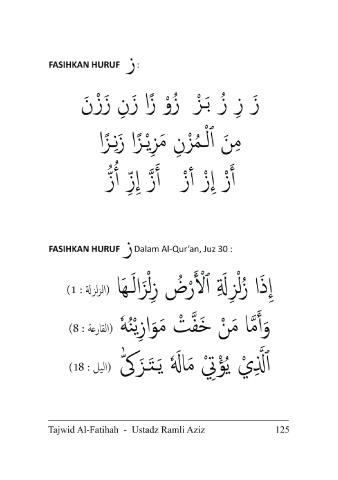 FASIHKAN HURUF ز :
زَ زِ زُ بَزْ زُوْ زًا زَنِ زَزْنَ
مِنَ الْمُزْنِ مَزِيْزًا زَنِزًا
أَزْ إِزْ أزْ أَزَّ إِزِّ أُزُّ
FASIHKAN HURUF ز Dalam Al-Qur'an, Juz 30 :
إِذَا زُلْزِلَةِ الْأَرْضُ زِلْزَالَهَا (الزلزلة : 1)
وَأَمَّا مَنْ خَفَّتْ مَوَازِيْنُهٗ (القارعة : 8)
الَّذِيْ يُؤْتِيْ مَالَهٗ يَتَزَكّىٰ (اليل : 18)
Tajwid Al-Fatihah - Ustadz Ramli Aziz 125